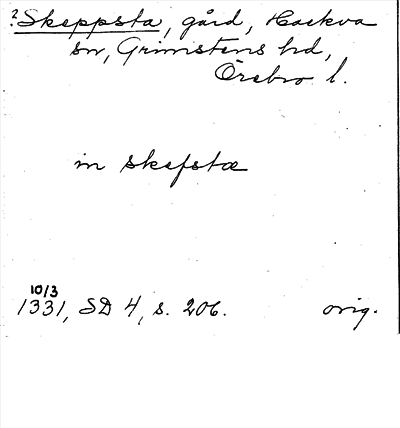 ? Skeppsta, gård, Hackva
sn, Grimstens hd,
Örebro l.
in skefstæ
10/3
1331, SD 4, s. 206. orig.